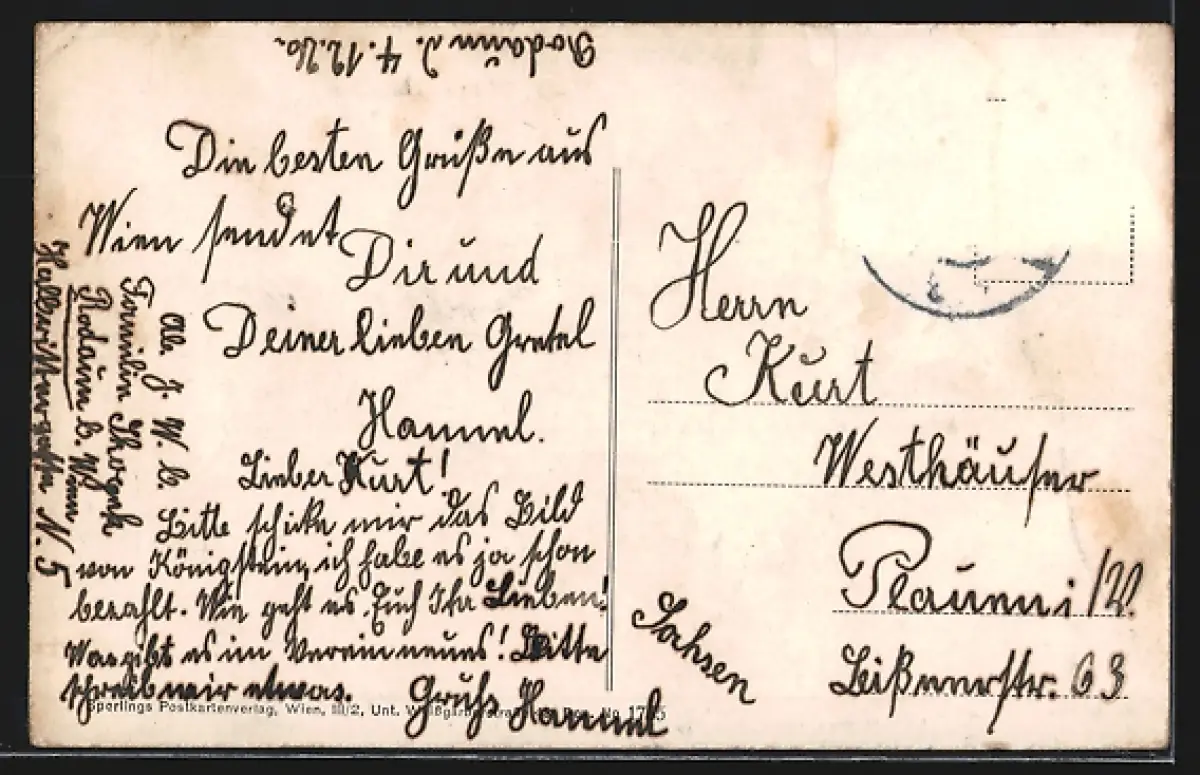 Rodaun d. 4.12.26.
Die besten Grüße aus
Wien sendet
Dir und
Deiner lieben Gretel
Hammel.
Lieber Kurt!
Bitte schicke mir das Bild
von Königstein, ich habe es ja schon
bezahlt. Wie geht es Euch Ihr Lieben!
Was gibt es im Verein neues! Bitte
schreib mir etwas. Gruß Hammel
Ab. J. W. b.
Familie
Rodaun b. Wien
N. 5
Herrn
Kurt
Westhäuser
Plauen i/V.
Lißnerstr. 63
Sachsen
Sperlings Postkartenverlag, Wien, III/2, Unt. No. 1765